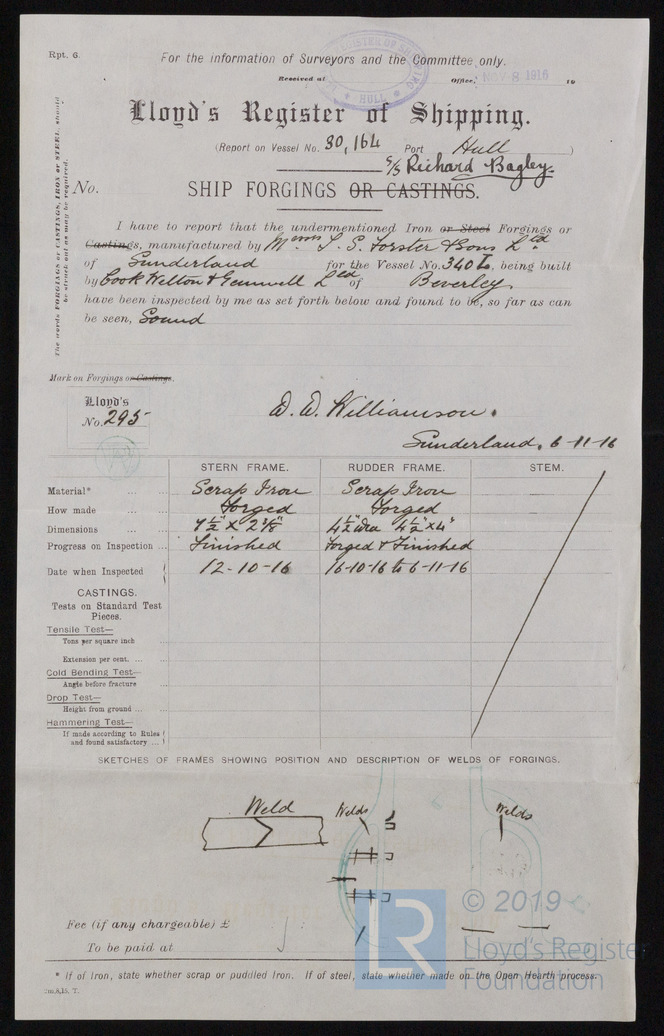 Rpt. 6.
For the information of Surveyors and the Committee only.
Received at Office, NOV 8 1916 19
REGISTER OF SHIPPING
HULL
Lloyd's Register of Shipping.
(Report on Vessel No. 30,164 Port Hull)
S/S Richard Bagley.
No.
SHIP FORGINGS OR CASTINGS.
The words FORGINGS or CASTINGS, IRON or STEEL, should
be struck out as may be required.
I have to report that the undermentioned Iron or Steel Forgings or
Castings, manufactured by Messrs T. S. Forster & Sons Ltd
of Sunderland for the Vessel No. 340, being built
by Cook Welton & Gemmell Ltd of Beverley.
have been inspected by me as set forth below and found to be, so far as can
be seen, Sound
Mark on Forgings or Castings.
Lloyd's
No. 295
Williamson.
Sunderland. 6-11-16
STERN FRAME. RUDDER FRAME. STEM.
Material* ... ... Scrap Iron Scrap Iron
How made ... Forged Forged
Dimensions ... 7½" x 2⅜" 4½" dia 4½" x 4"
Progress on Inspection ... Finished Forged & Finished
Date when Inspected 12-10-16 16-10-16 to 6-11-16
CASTINGS.
Tests on Standard Test
Pieces.
Tensile Test—
Tons per square inch
Extension per cent. ... ...
Cold Bending Test—
Angle before fracture ...
Drop Test—
Height from ground ... ...
Hammering Test—
If made according to Rules
and found satisfactory ...
SKETCHES OF FRAMES SHOWING POSITION AND DESCRIPTION OF WELDS OF FORGINGS.
Weld Welds Welds
Fee (if any chargeable) £ : :
To be paid at
* If of Iron, state whether scrap or puddled Iron. If of steel, state whether made on the Open Hearth process.
LR
© 2019
Lloyd's Register
Foundation